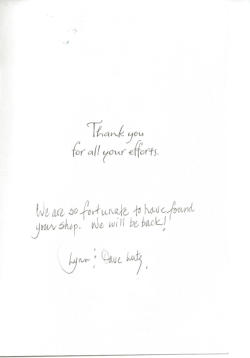 Thank you
for all your efforts.
We are so fortunate to have found
your shop. We will be back!
Lynn & Dave Lutz